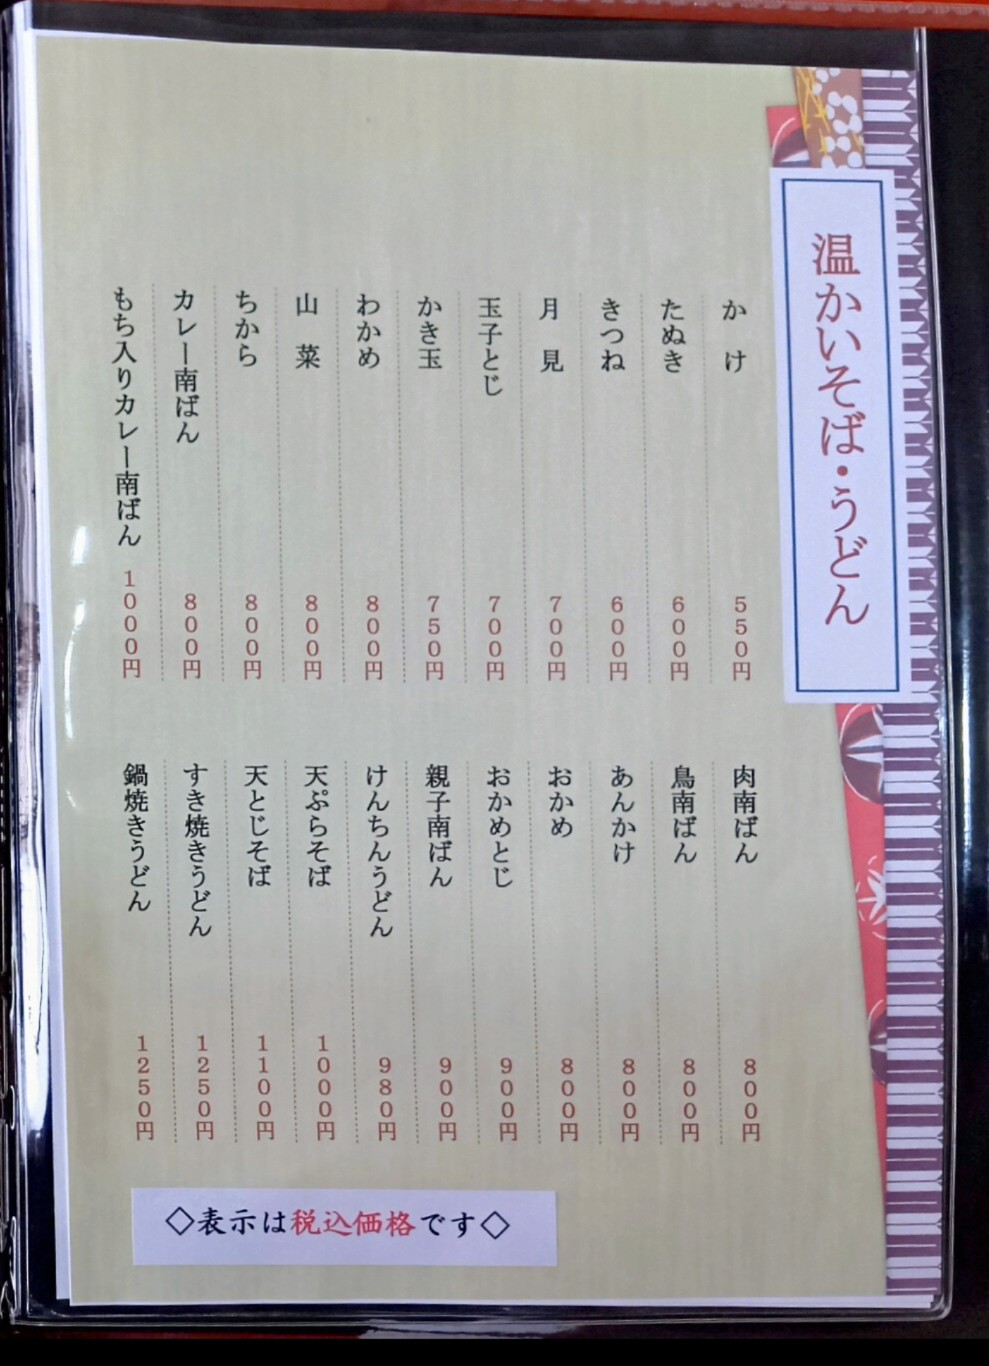 温かいそば・うどん
かけ 550円
たぬき 600円
きつね 600円
月見 700円
玉子とじ 700円
かき玉 750円
わかめ 800円
山菜 800円
ちから 800円
カレー南ばん 800円
もち入りカレー南ばん 1000円
肉南ばん 800円
鳥南ばん 800円
あんかけ 800円
おかめ 800円
おかめとじ 900円
親子南ばん 900円
けんちんうどん 980円
天ぷらそば 1000円
天とじそば 1100円
すき焼きうどん 1250円
鍋焼きうどん 1250円
◇表示は税込価格です◇